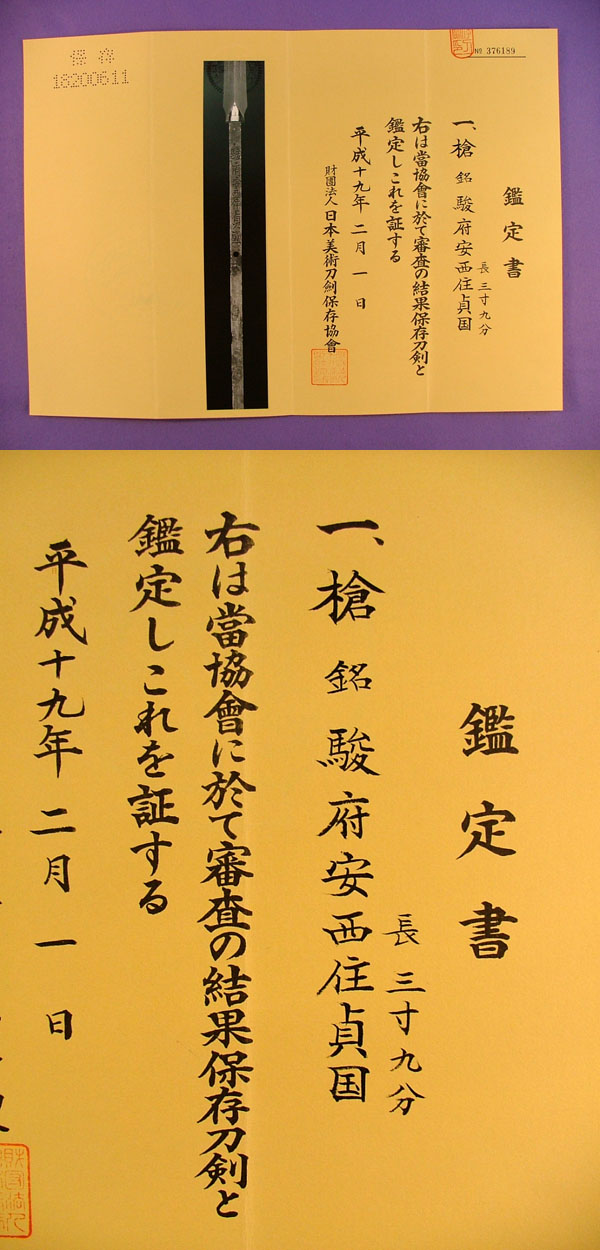 保存
18200611
№ 376189
鑑定書
長三寸九分
一、槍 銘 駿府安西住貞国
右は當協會に於て審査の結果保存刀剣と
鑑定しこれを証する
平成十九年二月一日
財團法人日本美術刀劍保存協會
鑑定書
長三寸九分
一、槍 銘 駿府安西住貞国
右は當協會に於て審査の結果保存刀剣と
鑑定しこれを証する
平成十九年二月一日